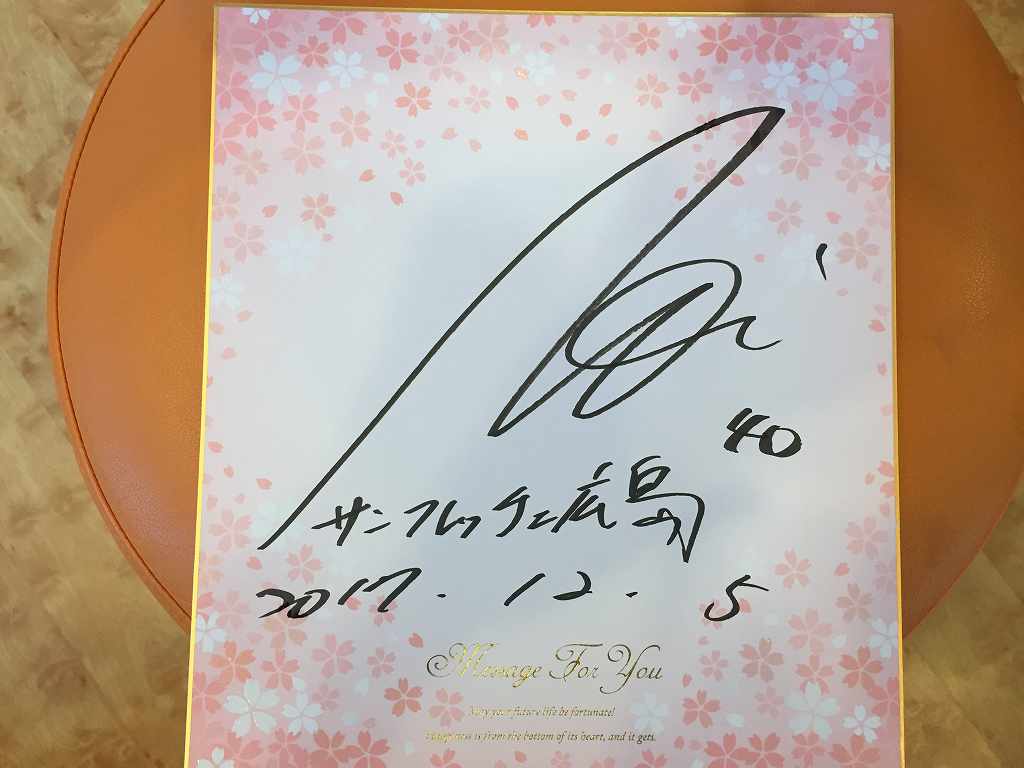 40
サンフレッチェ広島
2017.12.5
Message For You
May your future life be fortunate!
Happiness is from the bottom of its heart, and it gets.